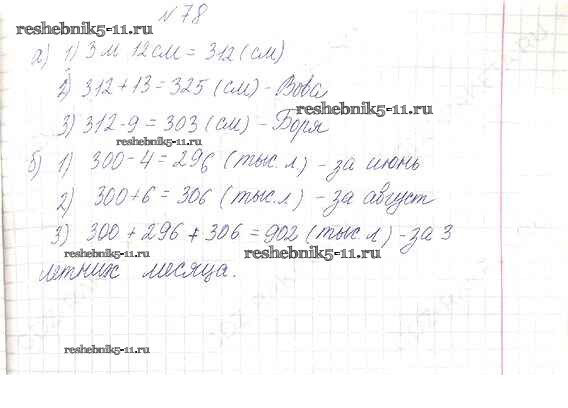 №78
reshebnik5-11.ru
а) 1) 3 м 12 см = 312 (см)
2) 312 + 13 = 325 (см) - Вова
reshebnik5-11.ru
3) 312 - 9 = 303 (см) - Боря
reshebnik5-11.ru
б) 1) 300 - 4 = 296 (тыс. л) - за июнь
2) 300 + 6 = 306 (тыс. л) - за август
reshebnik5-11.ru
3) 300 + 296 + 306 = 902 (тыс. л) - за 3
reshebnik5-11.ru
летних месяца.
reshebnik5-11.ru